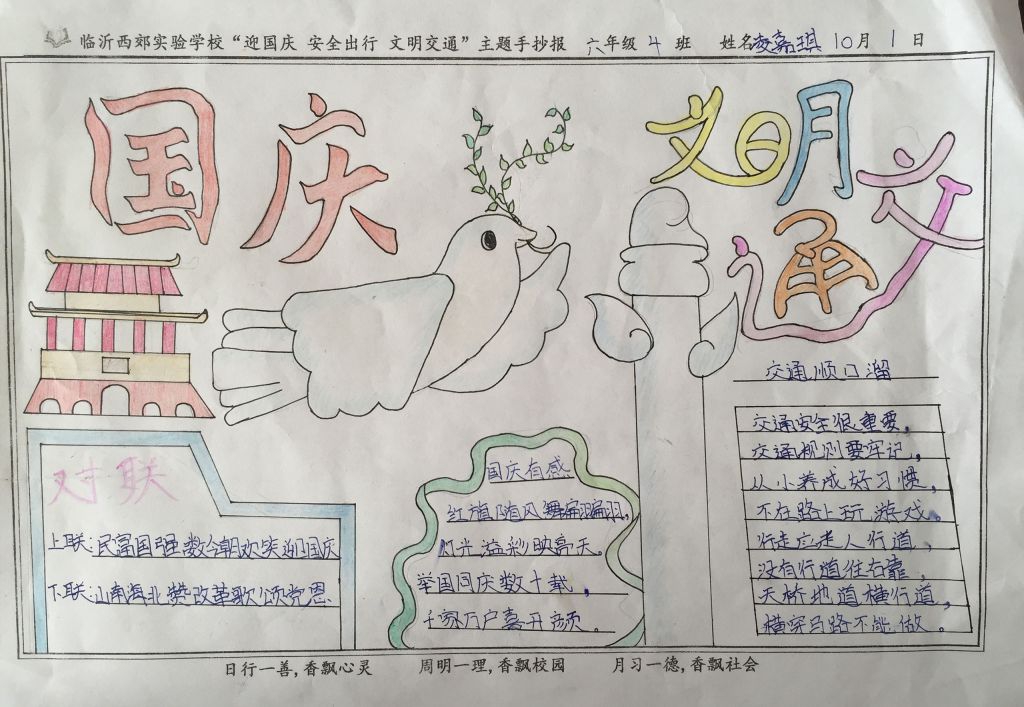 临沂西郊实验学校“迎国庆 安全出行 文明交通”主题手抄报 六年级 4 班 姓名凌嘉琪 10月 1 日
国庆
文明交通
对联
上联:民富国强数今朝欢笑迎国庆
下联:山南海北赞改革歌颂党恩
国庆有感
红旗随风舞翩翩,
灯光溢彩映高天。
举国同庆数十载,
千家万户喜开颜。
交通顺口溜
交通安全很重要,
交通规则要牢记,
从小养成好习惯,
不在路上玩游戏。
行走应走人行道,
没有行道往右靠,
天桥地道横行道,
横穿马路不能做。
日行一善,香飘心灵 周明一理,香飘校园 月习一德,香飘社会